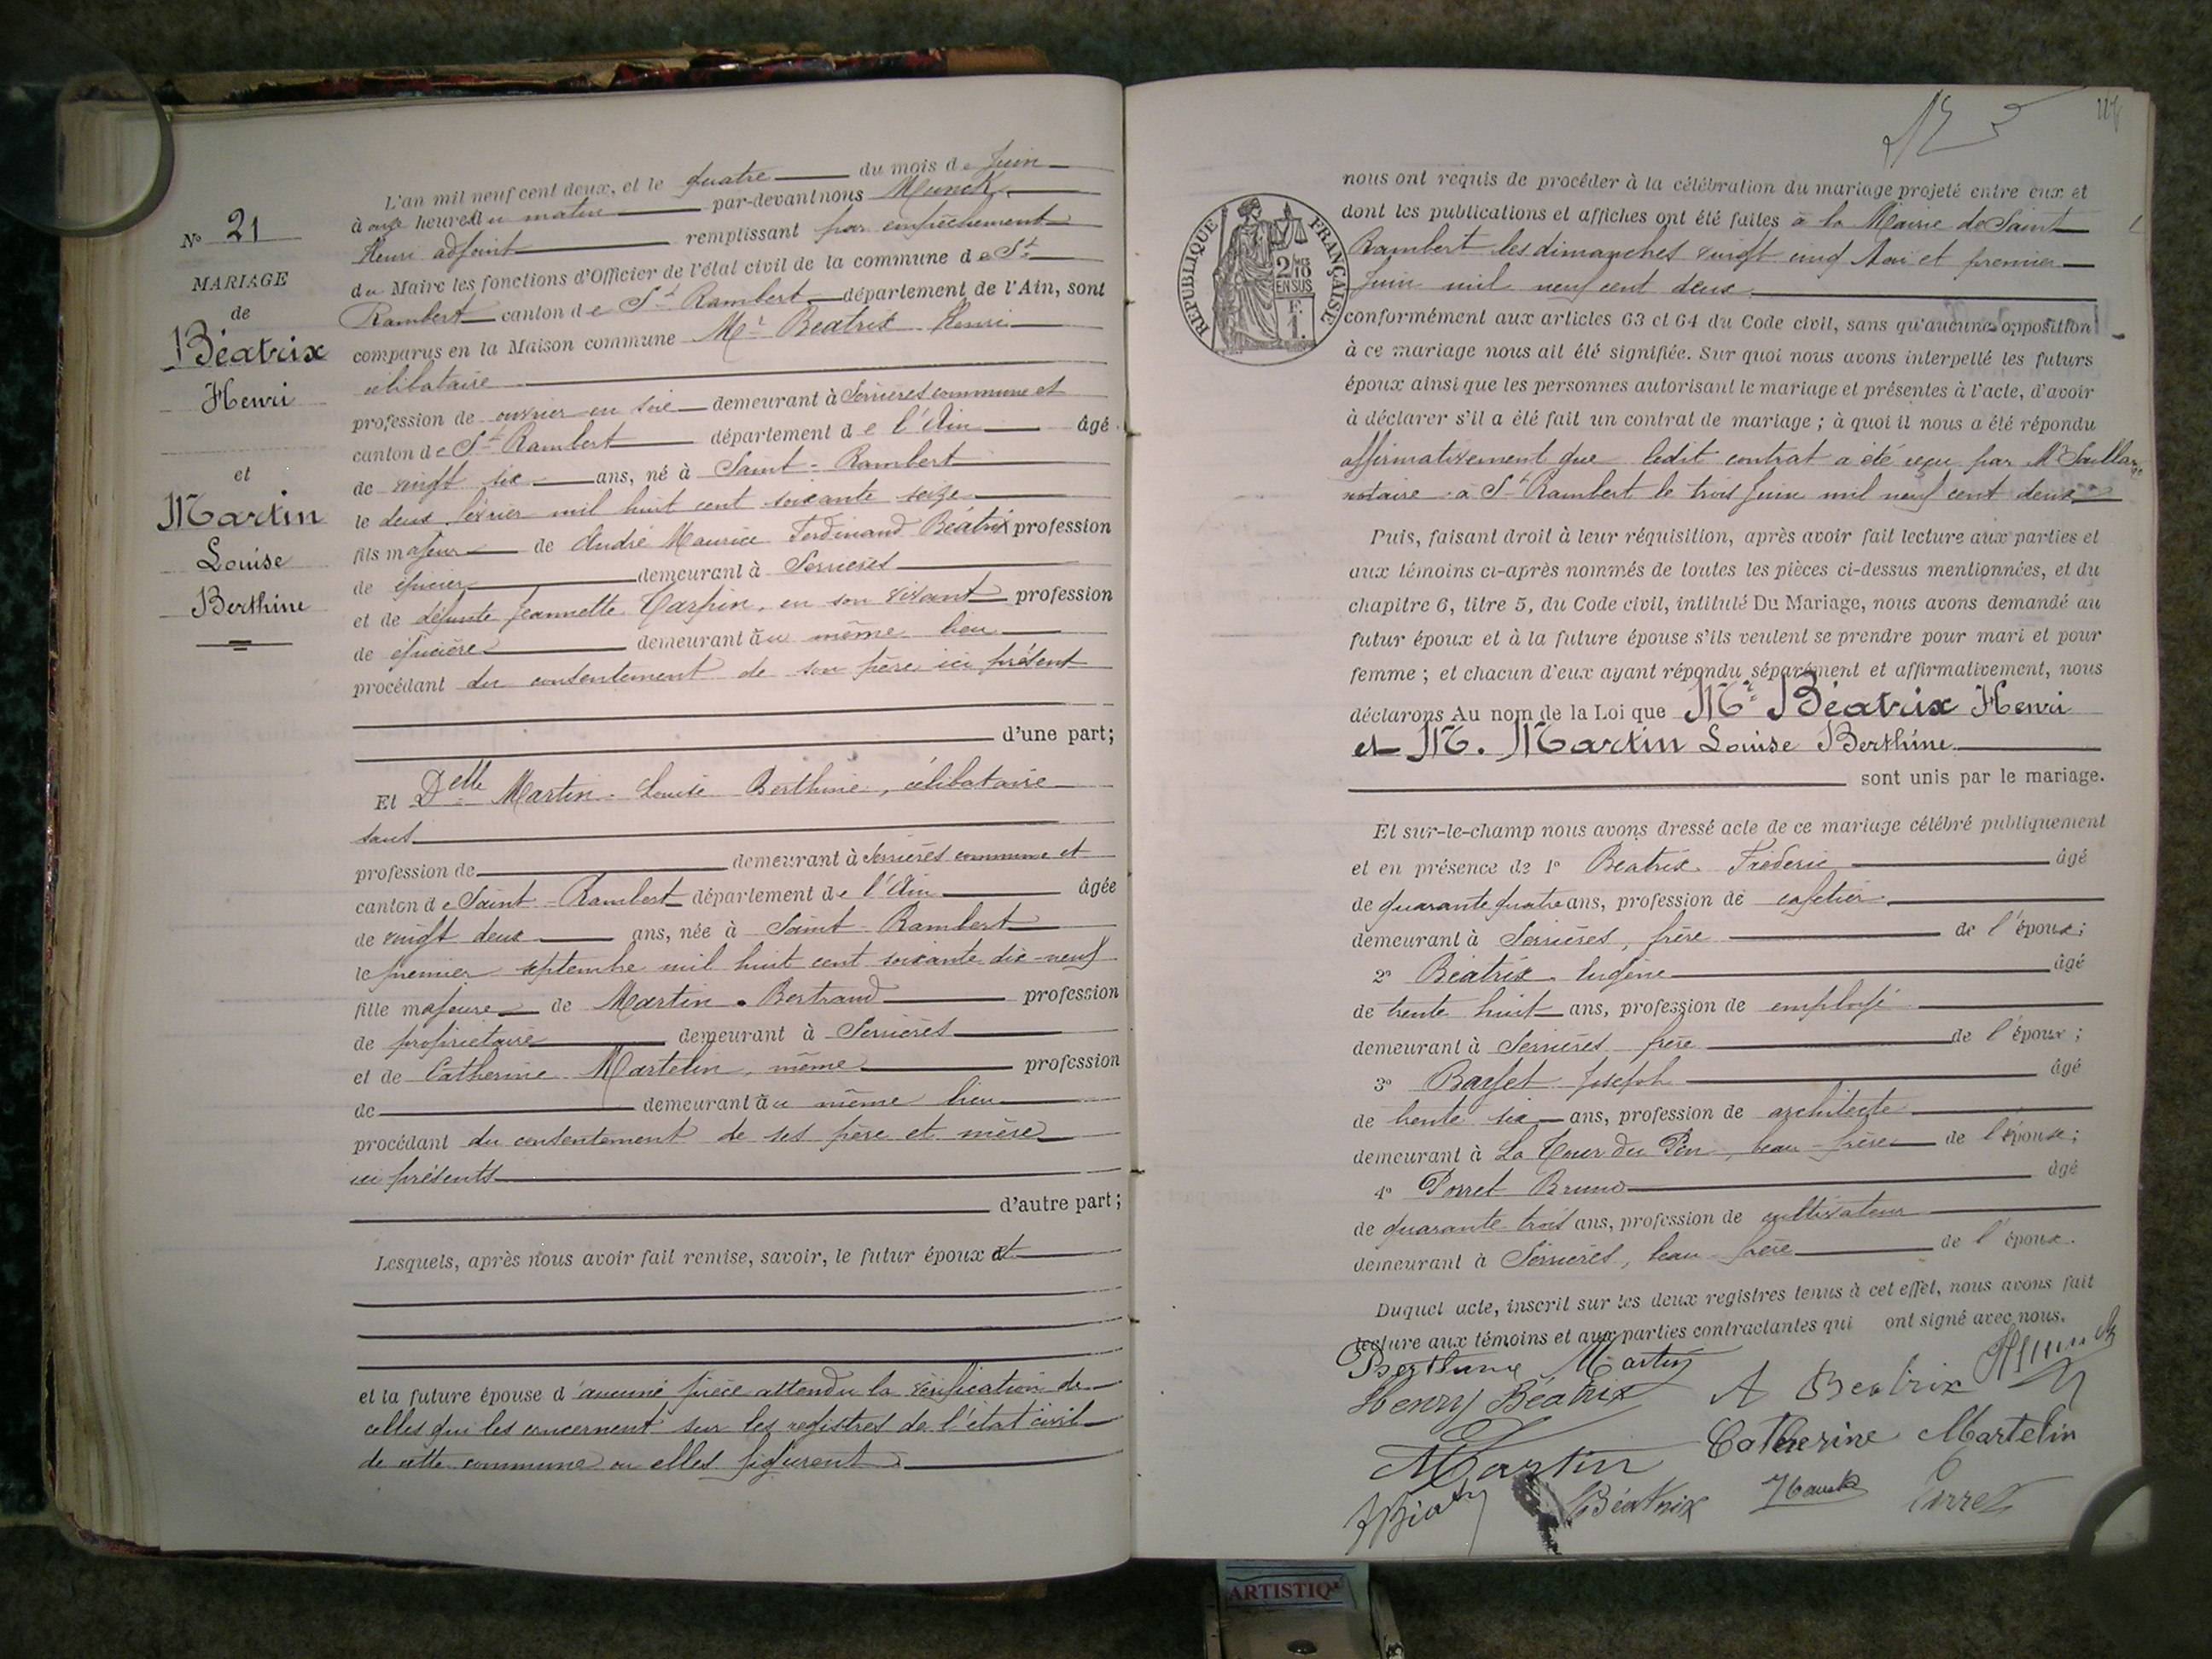 N° 21
MARIAGE
de
Béatrix
Henri
et
Martin
Louise
Berthine
L'an mil neuf cent deux, et le quatre du mois de Juin
à onze heures du matin par-devant nous Munck
Henri adjoint remplissant par empêchement
du Maire les fonctions d'Officier de l'état civil de la commune de St
Rambert canton de St Rambert département de l'Ain, sont
comparus en la Maison commune Mr Béatrix Henri
célibataire
profession de ouvrier en soie demeurant à Serrières commune et
canton de St Rambert département de l'Ain âgé
de vingt six ans, né à Saint-Rambert
le deux février mil huit cent soixante seize
fils majeur de André Maurice Ferdinand Béatrix profession
de épicier demeurant à Serrières
et de défunte Jeannette Carpin, en son vivant profession
de épicière demeurant au même lieu
procédant du consentement de son père ici présent
d'une part;
Et Delle Martin Louise Berthine, célibataire
sans
profession de demeurant à Serrières commune et
canton de Saint-Rambert département de l'Ain âgée
de vingt deux ans, née à Saint-Rambert
le premier septembre mil huit cent soixante dix-neuf
fille majeure de Martin Bertrand profession
de propriétaire demeurant à Serrières
et de Catherine Martelin, même profession
de demeurant au même lieu
procédant du consentement de ses père et mère
ici présents
d'autre part;
Lesquels, après nous avoir fait remise, savoir, le futur époux et
et la future épouse d'aucune pièce attendu la vérification de
celles qui les concernent sur les registres de l'état civil
de cette commune où elles figurent
RÉPUBLIQUE FRANÇAISE
2/10
EN SUS
nous ont requis de procéder à la célébration du mariage projeté entre eux et
dont les publications et affiches ont été faites à la Mairie de Saint
Rambert les dimanches vingt cinq Mai et premier
Juin mil neuf cent deux
conformément aux articles 63 et 64 du Code civil, sans qu'aucune opposition
à ce mariage nous ait été signifiée. Sur quoi nous avons interpellé les futurs
époux ainsi que les personnes autorisant le mariage et présentes à l'acte, d'avoir
à déclarer s'il a été fait un contrat de mariage; à quoi il nous a été répondu
affirmativement que ledit contrat a été reçu par Me
notaire à St Rambert le trois Juin mil neuf cent deux
Puis, faisant droit à leur réquisition, après avoir fait lecture aux parties et
aux témoins ci-après nommés de toutes les pièces ci-dessus mentionnées, et du
chapitre 6, titre 5, du Code civil, intitulé Du Mariage, nous avons demandé au
futur époux et à la future épouse s'ils veulent se prendre pour mari et pour
femme; et chacun d'eux ayant répondu séparément et affirmativement, nous
déclarons Au nom de la Loi que Mr Béatrix Henri
et M. Martin Louise Berthine
sont unis par le mariage.
Et sur-le-champ nous avons dressé acte de ce mariage célébré publiquement
et en présence de 1° Béatrix Frédéric âgé
de quarante quatre ans, profession de cafetier
demeurant à Serrières, frère de l'époux;
2° Béatrix Eugène âgé
de trente huit ans, profession de employé
demeurant à Serrières frère de l'époux;
3° Bayet Joseph âgé
de trente six ans, profession de architecte
demeurant à La Tour du Pin, beau-frère de l'épouse;
4° Porret Bruno âgé
de quarante trois ans, profession de cultivateur
demeurant à Serrières, beau frère de l'époux.
Duquel acte, inscrit sur les deux registres tenus à cet effet, nous avons fait
lecture aux témoins et aux parties contractantes qui ont signé avec nous.
Berthine Martin
Henry Béatrix A Béatrix
Martin Catherine Martelin
Béatrix Porret
ARTISTIQ